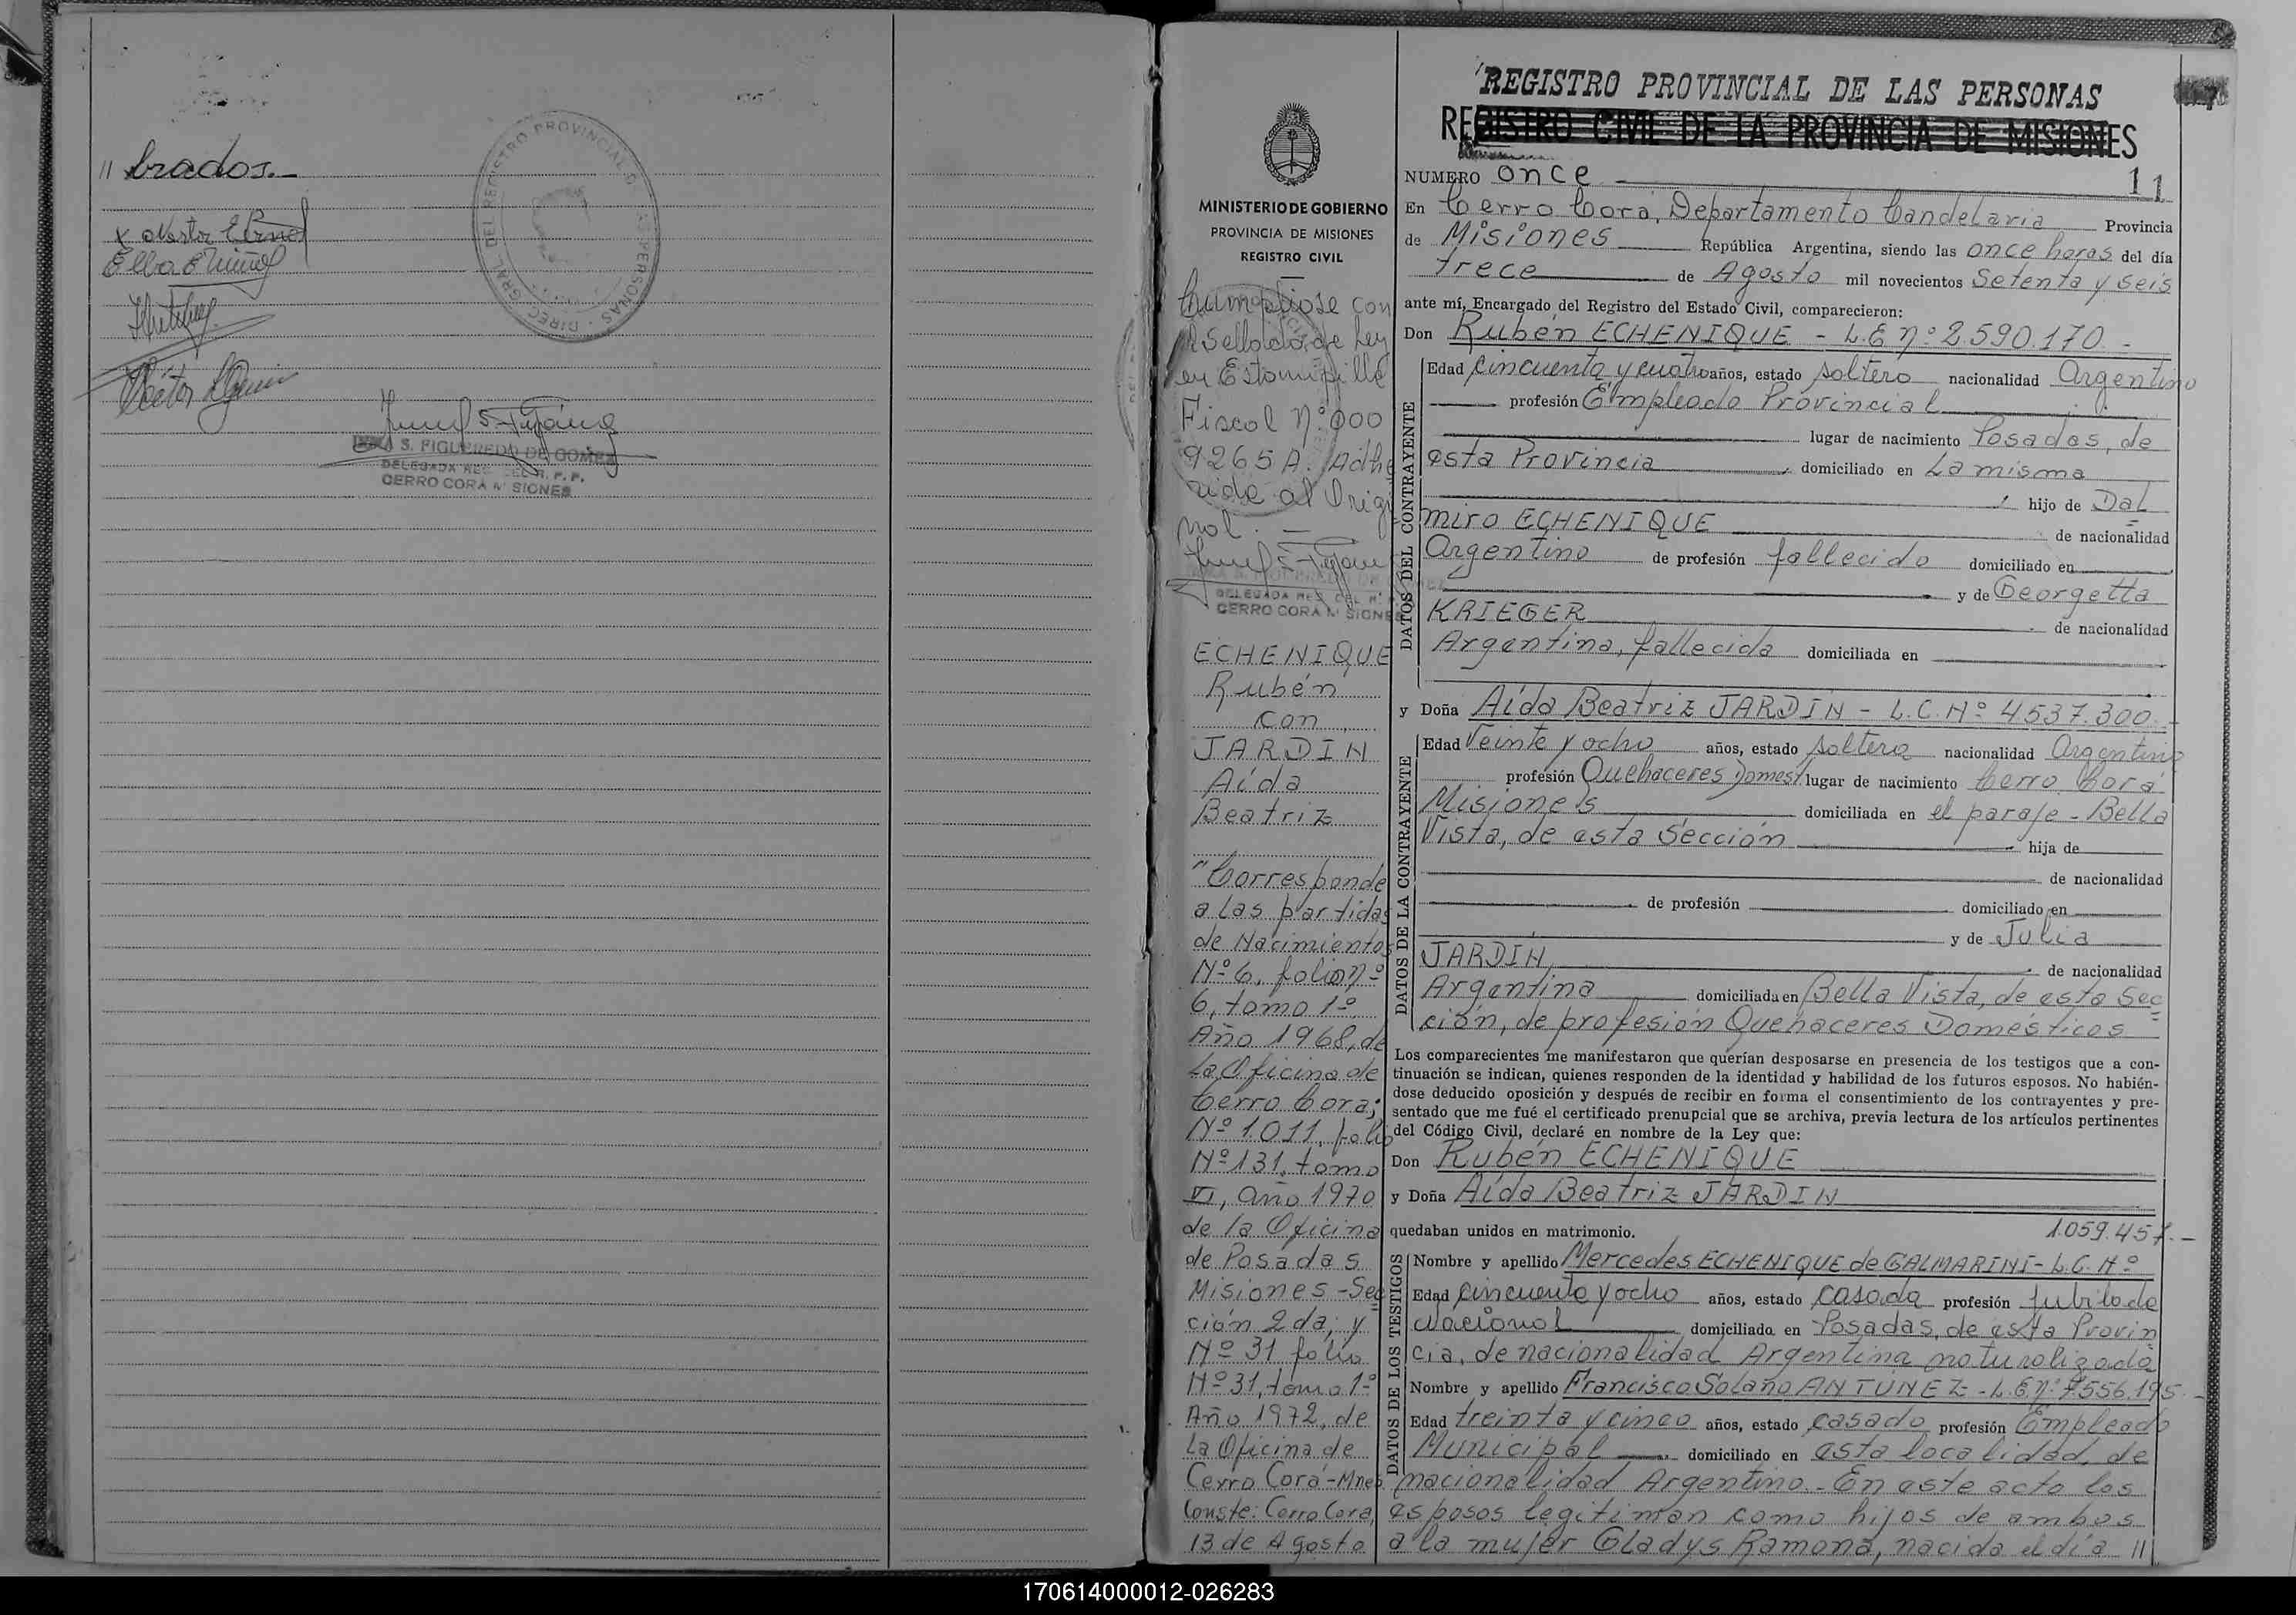 // brados.-
x Nestor E
Elba E
Héctor
DIREC. GRAL. DEL REGISTRO PROVINCIAL D LAS PERSONAS
S. FIGUEREDO DE GOMEZ
DELEGADA REG. DEL R. P. P.
CERRO CORA MISIONES
MINISTERIO DE GOBIERNO
PROVINCIA DE MISIONES
REGISTRO CIVIL
Cumpliose con
el Sellado de Ley
en Estampilla
Fiscal Nº 000
9265 A. Adhe
rida al Origi
nal. —
DELEGADA REG. DEL R.
CERRO CORA MISIONES
ECHENIQUE
Rubén
con
JARDIN
Aída
Beatriz
"Corresponde
a las partidas
de Nacimientos
Nº 6, folio nº
6, tomo 1º
Año 1968, de
La Oficina de
Cerro Corá;
Nº 1011, folio
Nº 131, tomo
VI, año 1970
de la Oficina
de Posadas
Misiones - Sec
ción 2da; y
Nº 31 folio
Nº 31, tomo 1º
Año 1972, de
La Oficina de
Cerro Corá - Mnes
Conste: Cerro Corá,
13 de Agosto
REGISTRO PROVINCIAL DE LAS PERSONAS
REGISTRO CIVIL DE LA PROVINCIA DE MISIONES
NUMERO once 11
En Cerro Corá, Departamento Candelaria Provincia
de Misiones República Argentina, siendo las once horas del día
trece de Agosto mil novecientos Setenta y seis
ante mí, Encargado del Registro del Estado Civil, comparecieron:
Don Ruben ECHENIQUE - L.E. nº 2.590.170.-
DATOS DEL CONTRAYENTE
Edad Cincuenta y cuatro años, estado soltero nacionalidad Argentino
profesión Empleado Provincial
lugar de nacimiento Posadas, de
esta Provincia domiciliado en La misma
hijo de Dal
miro ECHENIQUE de nacionalidad
Argentino de profesión fallecido domiciliado en
y de Georgetta
KRIEGER de nacionalidad
Argentina, fallecida domiciliada en
y Doña Aída Beatriz JARDIN - L.C. Nº 4.537.300.-
DATOS DE LA CONTRAYENTE
Edad Veinte y ocho años, estado soltera nacionalidad Argentina
profesión Quehaceres Domest. lugar de nacimiento Cerro Corá
Misiones domiciliada en el paraje - Bella
Vista, de esta Sección hija de
de nacionalidad
de profesión domiciliado en
y de Julia
JARDIN, de nacionalidad
Argentina domiciliada en Bella Vista, de esta Sec
ción, de profesión Quehaceres Domésticos
Los comparecientes me manifestaron que querían desposarse en presencia de los testigos que a con-
tinuación se indican, quienes responden de la identidad y habilidad de los futuros esposos. No habién-
dose deducido oposición y después de recibir en forma el consentimiento de los contrayentes y pre-
sentado que me fué el certificado prenupcial que se archiva, previa lectura de los artículos pertinentes
del Código Civil, declaré en nombre de la Ley que:
Don Rubén ECHENIQUE
y Doña Aída Beatriz JARDIN
quedaban unidos en matrimonio. 1.059.457.-
DATOS DE LOS TESTIGOS
Nombre y apellido Mercedes ECHENIQUE de GALMARINI - L.C. Nº
Edad cincuenta y ocho años, estado casada profesión Jubilada
Nacional domiciliada en Posadas, de esta Provin
cia, de nacionalidad Argentina naturalizada
Nombre y apellido Francisco Solano ANTUNEZ - L.E. nº 7.556.195.-
Edad treinta y cinco años, estado casado profesión Empleado
Municipal domiciliado en esta localidad, de
nacionalidad Argentino. - En este acto los
esposos legitiman como hijos de ambos
a la mujer Gladys Ramona, nacida el día //
170614000012-026283